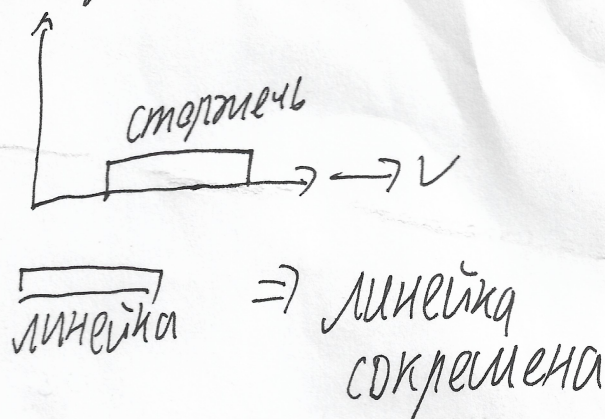 стержень
V
линейка
=> линейка
сокращена